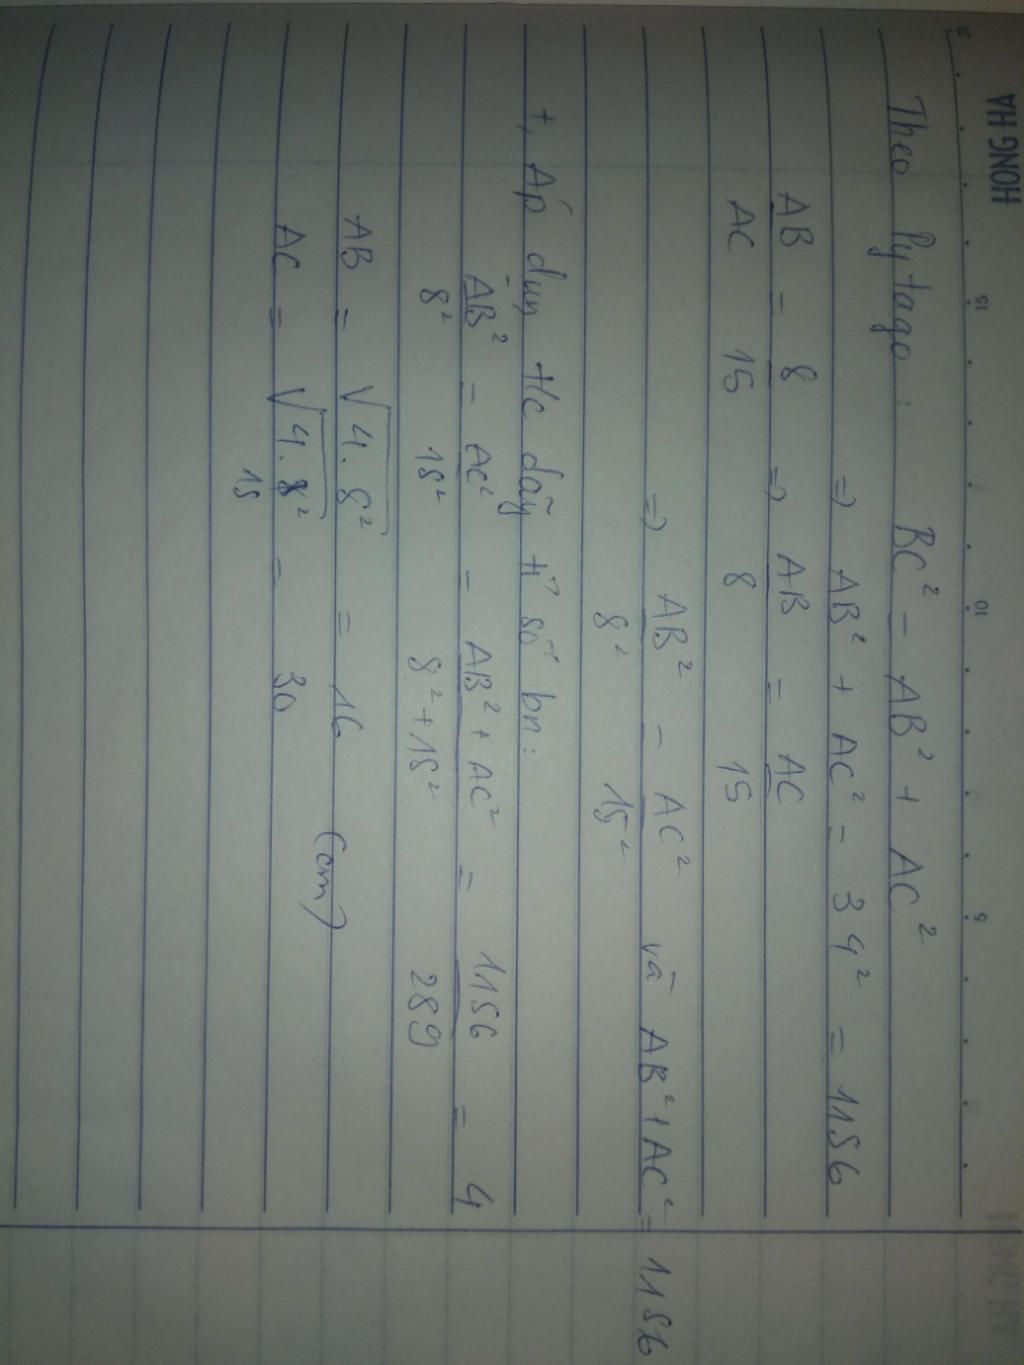 HONG HA
15 10 5
Theo Pytago : BC² = AB² + AC²
=> AB² + AC² = 34² = 1156
AB/AC = 8/15 => AB/8 = AC/15
=> AB²/8² = AC²/15² và AB² + AC² = 1156
+, Áp dụng t/c dãy tỉ số bn:
AB²/8² = AC²/15² = AB² + AC²/8² + 15² = 1156/289 = 4
AB = √4.8² = 16
(cm)
AC = √4.8² = 30
15